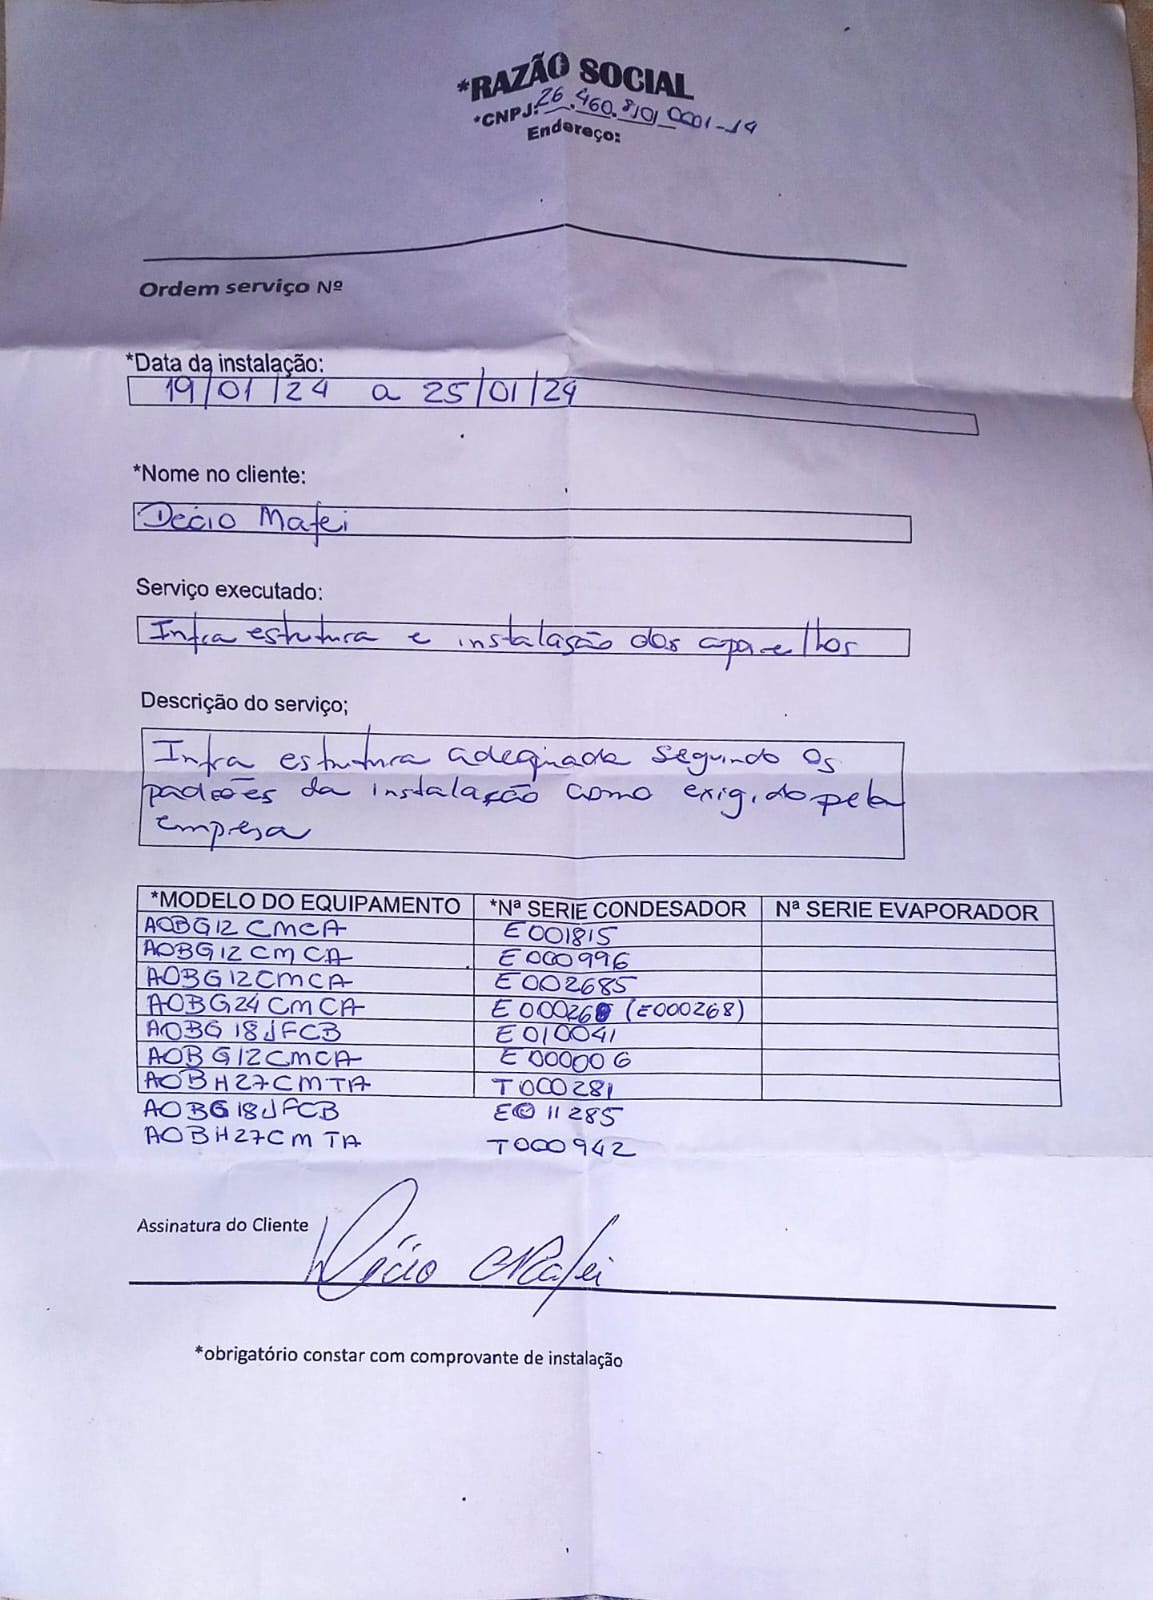 *RAZÃO SOCIAL
*CNPJ: 26.460.810/0001-14
Endereço:
Ordem serviço Nº
*Data da instalação:
19/01/24 a 25/01/24
*Nome no cliente:
Décio Mafei
Serviço executado:
Infra estrutura e instalação dos aparelhos
Descrição do serviço;
Infra estrutura adequada segundo os
padrões da instalação como exigido pela
empresa
*MODELO DO EQUIPAMENTO *Nª SERIE CONDESADOR Nª SERIE EVAPORADOR
AOBG12CMCA E001815
AOBG12CMCA E000996
AOBG12CMCA E002685
AOBG24CMCA E000268 (E000268)
AOBG18JFCB E010041
AOBG12CMCA E000006
AOBH27CMTA T000281
AOBG18JFCB E011285
AOBH27CMTA T000942
Assinatura do Cliente Décio Mafei
*obrigatório constar com comprovante de instalação